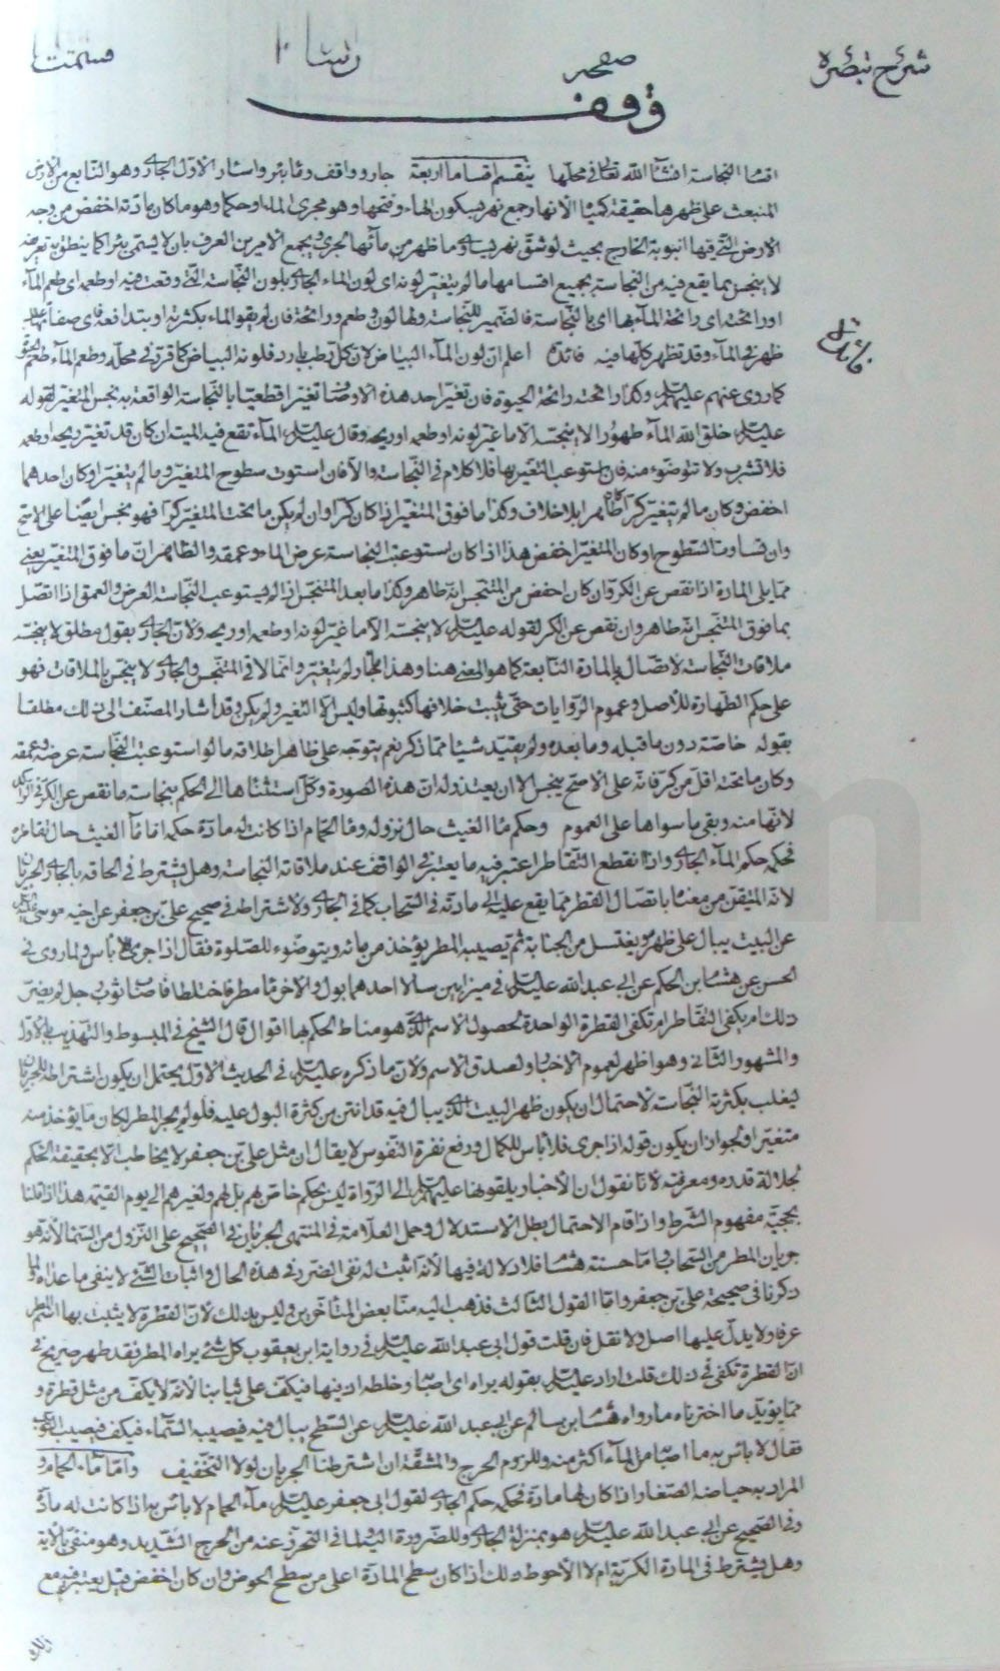 شرح تبصره
صفحه
وقف
اقسا النجاسة انشآ الله تعالى في محلها ينقسم اقساما اربعة جار وواقف وماء بئر واسئار الاول الجاري وهو النابع من الارض
المنبعث على ظهرها حقيقة كمياه الانهار جمع نهر بسكون الهاء وفتحها وهو مجرى الماء او حكما وهو ما كان مادته اخفض من وجه
الارض التي فيها انبوبة الخارج بحيث لو شق نهر لساوى ما ظهر من مآئها الجرى ويجمع الامرين العرف بان لا يسمى بئرا كما ينطق به تعريفه
لا ينجس بما يقع فيه من النجاسة بجميع اقسامها ما لم يتغير لونه اى لون الماء الجاري بلون النجاسة التي وقعت فيه او طعمه اى طعم المآء
او رائحته اى رائحة المآء بها اى بالنجاسة فالضمير للنجاسة ولها لون وطعم ورائحة فان لم يقو الماء بكثرته او بتدافعه فاى صفاتها
ظهر في المآء وقد تظهر كلها فيه فائدة اعلم ان لون المآء البياض لان كل رطب بارد فلونه البياض كما قرر في محله وطعم المآء طعم الحيوة
فائدة
كما روى عنهم عليهم السلام وكذا رائحته رائحة الحيوة فان تغير احد هذه الاوصاف تغيرا قطعيا بالنجاسة الواقعة به نجس المتغير لقوله
عليه السلام خلق الله المآء طهورا لا ينجسه الا ما غير لونه او طعمه او ريحه وقال عليه السلام في المآء تقع فيه الميتة ان كان قد تغير ريحه او طعمه
فلا تشرب ولا تتوضوء منه فان استوعب التغير بها فلا كلام في النجاسة والا فان استوت سطوح المتغير وما لم يتغير او كان احدهما
اخفض وكان ما لم يتغير كرا طاهرا بلا خلاف وكذا ما فوق المتغير اذا كان كرا وان لم يكن ما تحت المتغير كرا فهو نجس ايضا على الاصح
وان تساوت السطوح او كان المتغير اخفض هذا اذا كان يستوعب النجاسة عرض الماء وعمقه والظاهر ان ما فوق المتغير يعني
مما يلى المادة اذا نقص عن الكر وان كان اخفض من المتنجس انه طاهر وكذا ما بعد المتنجس اذا لم يستوعب النجاسة العرض والعمق اذا اتصل
بما فوق المتنجس انه طاهر وان نقص عن الكر لقوله عليه السلام لا ينجسه الا ما غير لونه او طعمه او ريحه ولان الجاري بقول مطلق لا ينجسه
ملاقات النجاسة لاتصاله بالمادة النابعة كما هو المعنى هنا وهذا الماء جار لم يتغير وانما لاقى المتنجس والجاري لا ينجس بالملاقات فهو
على حكم الطهارة للاصل وعموم الروايات حتى يثبت خلافها كثبوتها وليس الا التغير ولم يكن وقد اشار المصنف الى ذلك مطلقا
بقوله خاصة دون ما قبله وما بعده ولم يقيد شيئا مما ذكر نعم يتوجه على ظاهر اطلاقه ما لو استوعبت النجاسة عرضه وعمقه
وكان ما تحته اقل من كر فانه على الاصح ينجس الا ان يعتذر له ان هذه الصورة وكل استثناها الى الحكم بنجاسة ما نقص عن الكر في
لانها منه وبقى ما سواها على العموم وحكم مآء الغيث حال نزوله ومآء الحمام اذا كانت له مادة حكمه اما مآء الغيث حال تقاطره
فحكمه حكم المآء الجاري واذا انقطع التقاطر اعتبر فيه ما يعتبر في الواقف عند ملاقاته النجاسة وهل يشترط في الحاقه بالجاري الجريان
لانه المتيقن من معنا باتصال القطر مما يقع عليه الى مادته في السحاب كما في الجاري ولاشتراطه في صحيح على بن جعفر عن اخيه موسى عليه السلام
عن البيت يبال على ظهره ويغتسل من الجنابة ثم يصيبه المطر يؤخذ من مائه ويتوضوء للصلوة فقال اذا جرى فلا باس ولما روى في
الحسن عن هشام بن الحكم عن ابى عبد الله عليه السلام في ميزابين سالا احدهما بول والاخر ماء مطر فاختلطا فاصاب ثوب رجل لم يضر
ذلك ام يكفى التقاطر ام تكفى القطرة الواحدة لحصول الاسم الذي هو مناط الحكم بها اقوال قال الشيخ في المبسوط والتهذيب بالاول
والمشهور الثانى وهو اظهر لعموم الاخبار ولصدق الاسم ولان ما ذكره عليه السلام في الحديث الاول يحتمل ان يكون اشتراطه للجريان
ليغلب بكثرته النجاسة لاحتمال ان يكون ظهر البيت الذي يبال فيه قد انتن من كثرة البول عليه فلو لم يجر المطر لكان ما يؤخذ منه
متغيرا او لجواز ان يكون قوله اذا جرى فلا باس للكمال ودفع نفرة النفوس لا يقال ان مثل على بن جعفر لا يخاطب الا بحقيقة الحكم
لجلالة قدره ومعرفته لانا نقول ان الاخبار يلقونها عليهم السلام الى الرواة ليس لحكم خاص لهم بل لهم ولغيرهم الى يوم القيمة هذا اذا قلنا
بحجية مفهوم الشرط واذا قام الاحتمال بطل الاستدلال وحمل العلامة في المنتهى الجريان في الصحيح على النزول من السمآء لانه هو
جريان المطر من السحاب واما حسنة هشام فلا دلالة فيها لانه اثبت له نفى الضرر في هذه الحال واثبات الشئ لا ينفى ما عداه ولما
ذكرنا في صحيحة على بن جعفر واما القول الثالث فذهب اليه منا بعض المتاخرين وليس بذلك لان القطرة لا يثبت بها المطر
عرفا ولا يدل عليها اصل ولا نقل فان قلت قول ابى عبد الله عليه السلام في رواية ابن يعقوب كل شئ يراه المطر فقد طهر صريح في
ان القطرة تكفى في ذلك قلت اراد عليه السلام بقوله يراه اى اصابه وخلطه اذ فيها فيكف على ثيابنا لانه لا يكف من مثل قطرة و
مما يؤيد ما اخترناه ما رواه هشام بن سالم عن ابى عبد الله عليه السلام عن السطح يبال فيه فيصيبه السمآء فيكف فيصيب الثوب
فقال لا باس به ما اصابه من المآء اكثر منه وللزوم الحرج والمشقة ان اشترطنا الجريان لولا التخفيف واما مآء الحمام و
المراد به حياضه الصغار اذا كان لها مادة فحكمه حكم الجاري لقول ابى جعفر عليه السلام مآء الحمام لا باس به اذا كانت له مادة
وفى الصحيح عن ابى عبد الله عليه السلام هو بمنزلة الجاري وللضرورة اليه ولما في التحرز عنه من الحرج الشديد وهو منفى بالاية
وهل يشترط في المادة الكرية ام لا الاحوط ذلك اذا كان سطح المادة اعلى من سطح الحوض وان كان اخفض قيل يعتبر فيه مع
ذلك